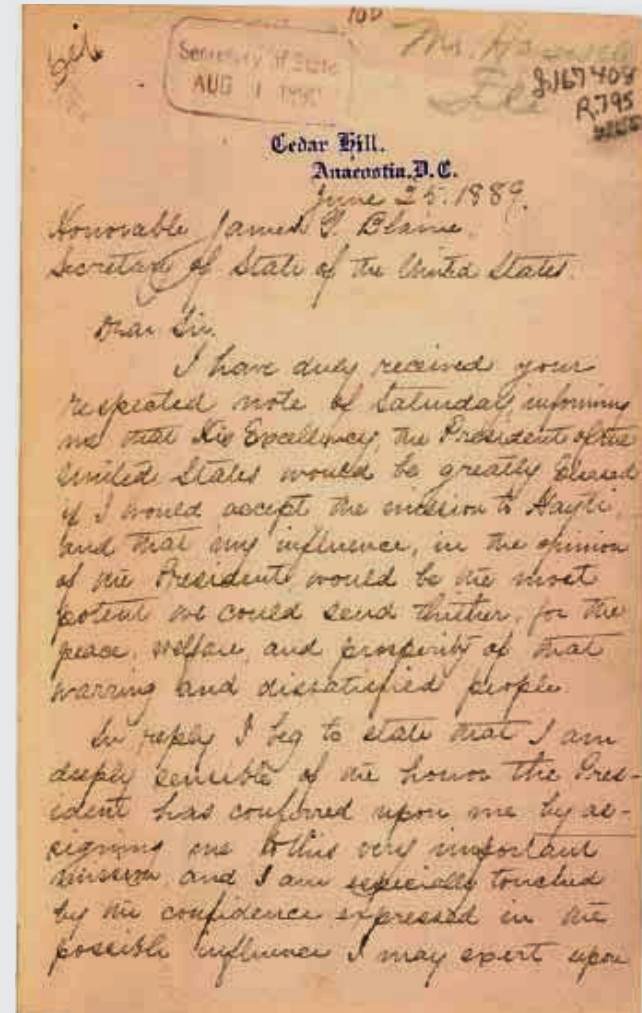 100
Secretary of State
AUG 1
Mr. 
J.167408
R.795
Cedar Hill.
Anacostia, D.C.
June 25. 1889.
Honorable James G. Blaine.
Secretary of State of the United States.
Dear Sir.
I have duly received your
respected note of Saturday, informing
me that His Excellency, the President of the
United States would be greatly pleased
if I would accept the mission to Hayti,
and that my influence, in the opinion
of the President, would be the most
potent we could send thither, for the
peace, welfare, and prosperity of that
warring and dissatisfied people.
In reply I beg to state that I am
deeply sensible of the honor the Pres-
ident has conferred upon me by as-
signing me to this very important
mission, and I am especially touched
by the confidence expressed in the
possible influence I may exert upon